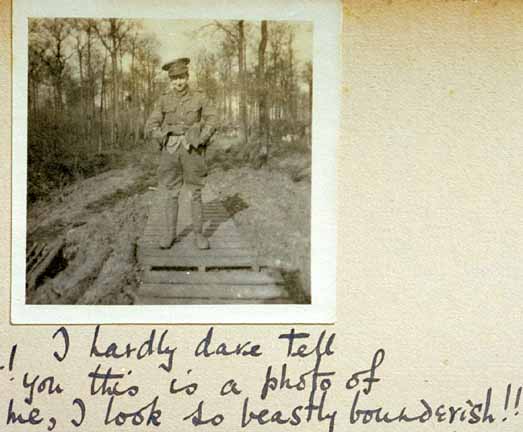 ! I hardly dare tell
you this is a photo of
me, I look so beastly bounderish!!